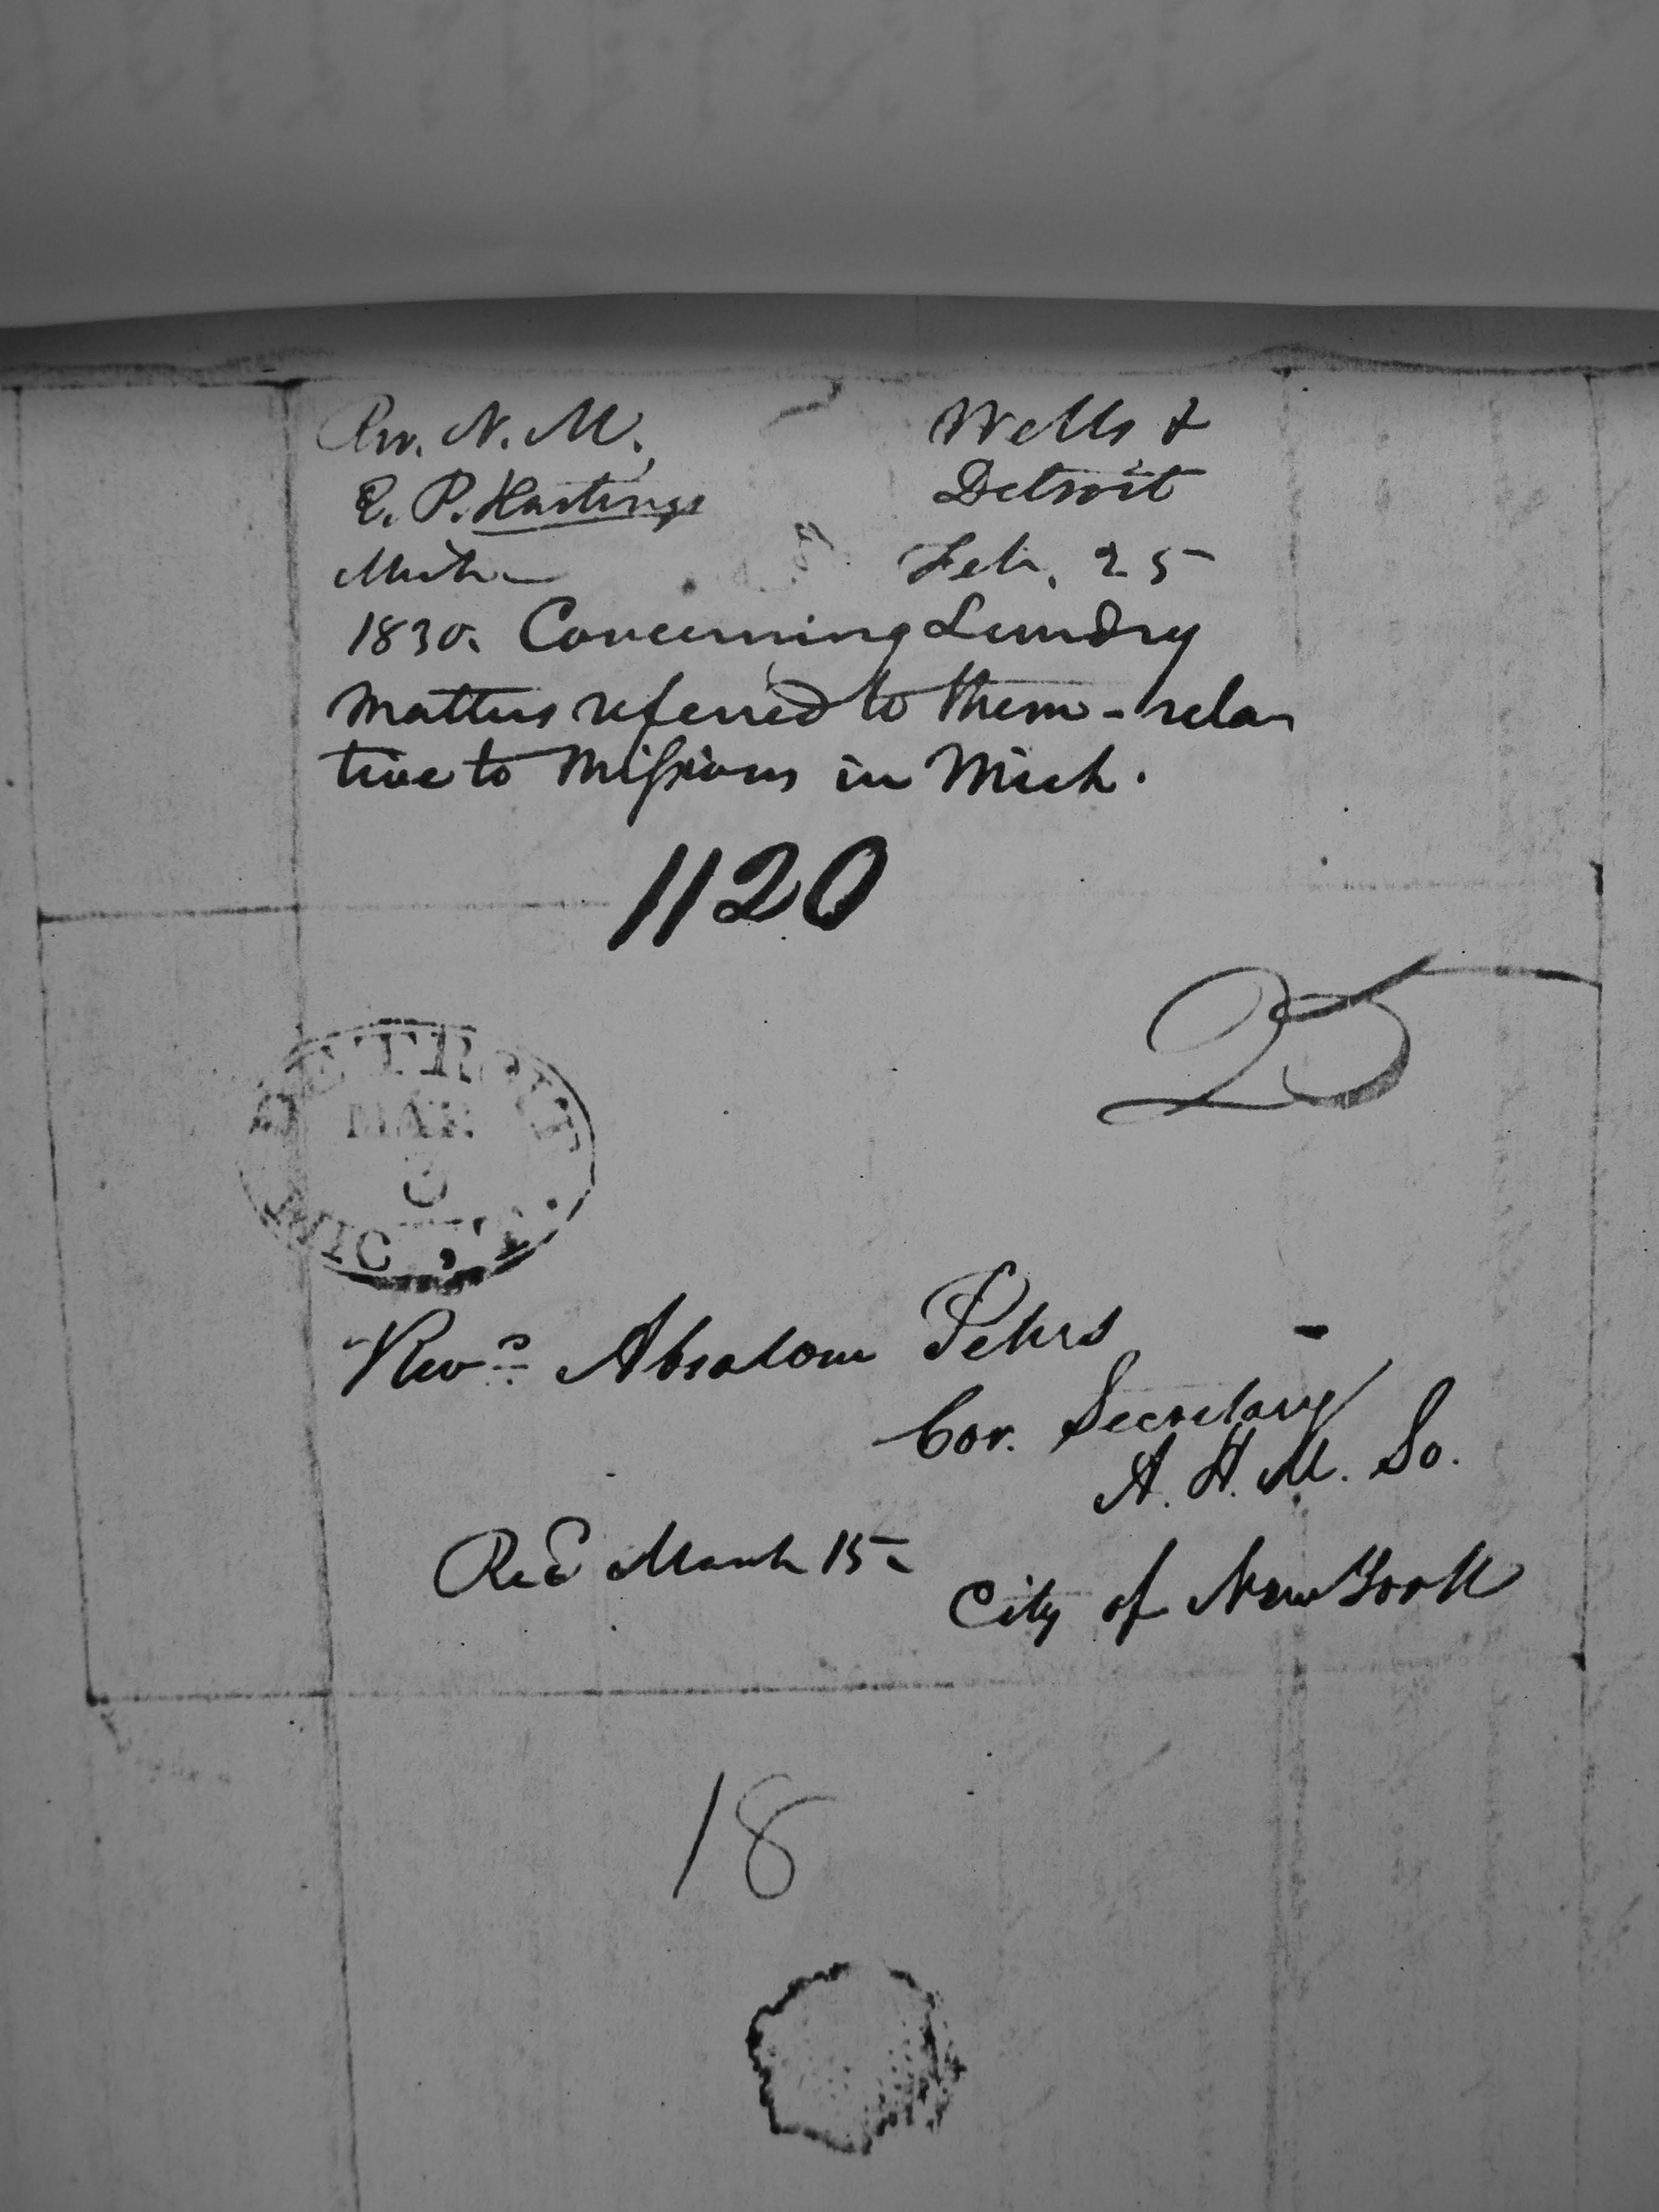 Rev. N. M. Wells &
E. P. Hastings, Detroit
Mich. Feb. 25
1830. Concerning Sundry
matters referred to them - rela-
tive to Missions in Mich.
1120
25
DETROIT
MAR
3
MIC. T.
Revd. Absalom Peters
Cor. Secretary
A. H. M. So.
Recd March 15-
City of New York
18